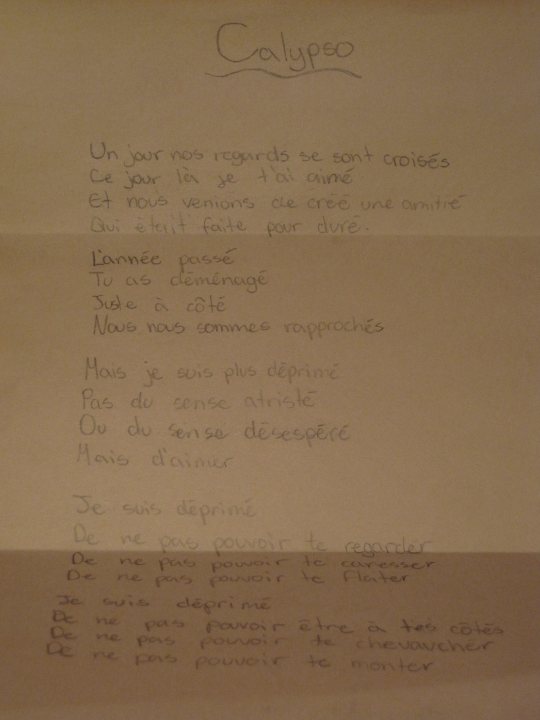 Calypso
Un jour nos regards se sont croisés
Ce jour là je t'ai aimé
Et nous venions de créé une amitié
Qui était faite pour duré.
L'année passé
Tu as déménagé
Juste à côté
Nous nous sommes rapprochés
Mais je suis plus déprimé
Pas du sense atristé
Ou du sense désespéré
Mais d'aimer
Je suis déprimé
De ne pas pouvoir te regarder
De ne pas pouvoir te caresser
De ne pas pouvoir te flater
Je suis déprimé
De ne pas pouvoir être à tes côtés
De ne pas pouvoir te chevaucher
De ne pas pouvoir te monter